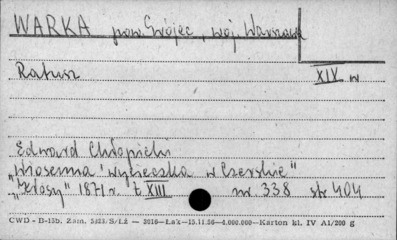 WARKA pow. Grójec, woj. Warszawa
Ratusz XIV w
Edward Chłopicki
"Wiosenna wycieczka w Czerskie"
"Kłosy" 1871 r. t XIII nr. 338 str 404
CWD - B-12b. Zam. /Łż — 2010—Łak—15.11.56—4.000.000—Karton kl. IV A1/200 g